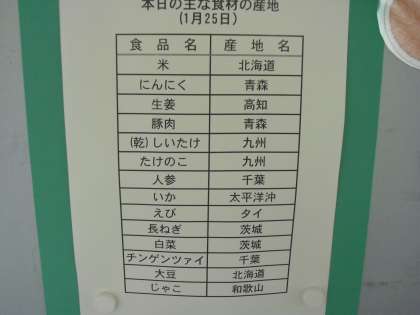 本日の主な食材の産地
(1月25日)
食品名 産地名
米 北海道
にんにく 青森
生姜 高知
豚肉 青森
(乾)しいたけ 九州
たけのこ 九州
人参 千葉
いか 太平洋沖
えび タイ
長ねぎ 茨城
白菜 茨城
チンゲンツァイ 千葉
大豆 北海道
じゃこ 和歌山